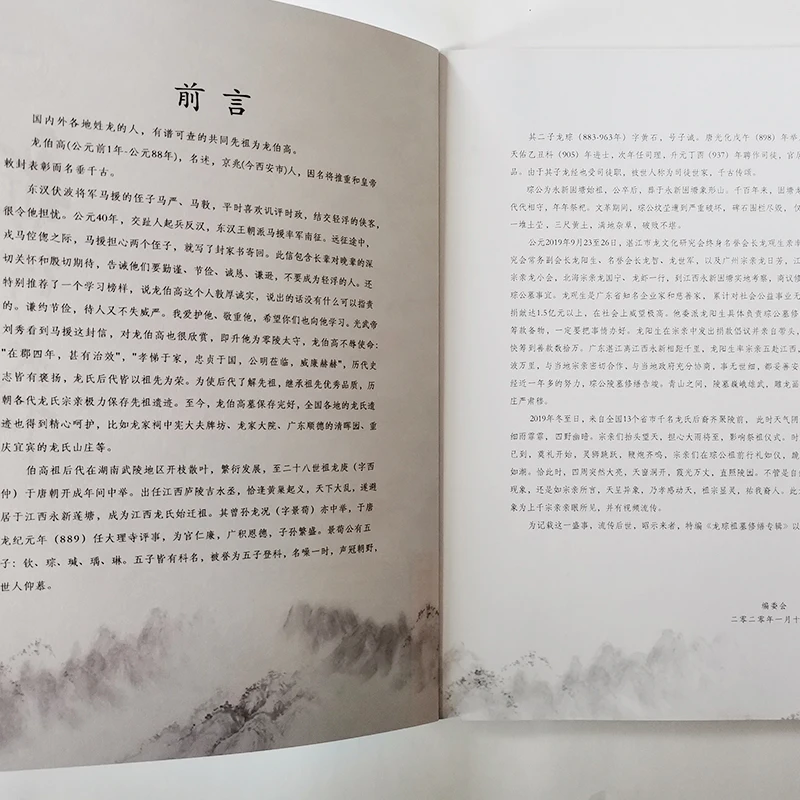 前言
国内外各地姓龙的人，有谱可查的共同先祖为龙伯高。
龙伯高(公元前1年-公元88年)，名述，京兆(今西安市)人，因名将推重和皇帝
敕封表彰而名垂千古。
东汉伏波将军马援的侄子马严、马敦，平时喜欢讥评时政，结交轻浮的侠客，
很令他担忧。公元40年，交趾人起兵反汉，东汉王朝派马援率军南征。远征途中，
戎马倥偬之际，马援担心两个侄子，就写了封家书寄回。此信包含长辈对晚辈的深
切关怀和殷切期待，告诫他们要勤谨、节俭、诚恳、谦逊，不要成为轻浮的人。还
特别推荐了一个学习榜样，说龙伯高这个人敦厚诚实，说出的话没有什么可以指责
的。谦约节俭，待人又不失威严。我爱护他、敬重他，希望你们也向他学习。光武帝
刘秀看到马援这封信，对龙伯高也很欣赏，即升他为零陵太守，龙伯高不辱使命：
"在郡四年，甚有治效"，"孝悌于家，忠贞于国，公明莅临，威廉赫赫"，历代史
志皆有褒扬，龙氏后代皆以祖先为荣。为使后代了解先祖，继承祖先优秀品质，历
朝各代龙氏宗亲极力保存先祖遗迹。至今，龙伯高墓保存完好，全国各地的龙氏遗
迹也得到精心呵护，比如龙家祠中宪大夫牌坊、龙家大院、广东顺德的清晖园、重
庆宜宾的龙氏山庄等。
伯高祖后代在湖南武陵地区开枝散叶，繁衍发展，至二十八世祖龙庚（字西
仲）于唐朝开成年间中举。出任江西庐陵吉水丞，恰逢黄巢起义，天下大乱，遂避
居于江西永新莲塘，成为江西龙氏始迁祖。其曾孙龙况（字景荀）亦中举，于唐
龙纪元年（889）任大理寺评事，为官仁廉，广积恩德，子孙繁盛。景荀公有五
子：钦、琮、瑊、瑀、琳。五子皆有科名，被誉为五子登科，名噪一时，声冠朝野，
世人仰慕。
其二子龙琮（883-963年）字黄石，号子诚。唐光化戊午（898）年举
天佑乙丑科（905）年进士，次年任司理，升元丁酉（937）年聘作司徒，官居
品。由于其子龙经也受司徒职，被世人称为司徒世家，千古传颂。
琮公为永新困塘始祖，公卒后，葬于永新困塘象形山。千百年来，困塘龙
代代相守，年年祭祀。文革期间，琮公坟茔遭到严重破坏，碑石围栏尽毁，仅
一堆土茔，三尺黄土，满地杂草，破败不堪。
公元2019年9月23至26日，湛江市龙文化研究会终身名誉会长龙观生亲
究会常务副会长龙阳生、名誉会长龙智、龙世军，以及广州宗亲龙日芳，江
宗亲龙小会，北海宗亲龙国宁、龙虾一行，到江西永新困塘实地考察，商议修
琮公墓事宜。龙观生是广东省知名企业家和慈善家，累计对社会公益事业无
捐献达1.5亿元以上，在社会上威望极高。他委派龙阳生具体负责琮公墓修
筹款备物，一定要把事情办好。龙阳生在宗亲中发出捐款倡议并亲自带头，
快筹到善款数拾万。广东湛江离江西永新相距千里，龙阳生率宗亲五赴江西，
波万里，与当地宗亲密切合作，与当地政府充分协商，事无世细，都妥善安
经近一年多的努力，琮公陵墓修缮告竣。青山之间，陵墓巍峨雄武，雕龙画
庄严肃穆。
2019年冬至日，来自全国13个省市千名龙氏后裔齐聚陵前，此时天气阴
细雨霏霏，四野幽暗。宗亲们抬头望天，担心大雨将至，影响祭祖仪式。时
已到，奠礼开始，灵狮跳跃，鞭炮齐鸣，宗亲们在琮公祖前行礼如仪，跪
如潮。恰此时，四周突然大亮，天窗洞开，霞光万丈，直照陵园。不管是自
现象，还是如宗亲所言，天呈异象，乃孝感动天，祖宗显灵，佑我裔人。此
象为上千宗亲亲眼所见，并有视频流传。
为记载这一盛事，流传后世，昭示来者，特编《龙琮祖墓修缮专辑》以
编委会
二零二零年一月十